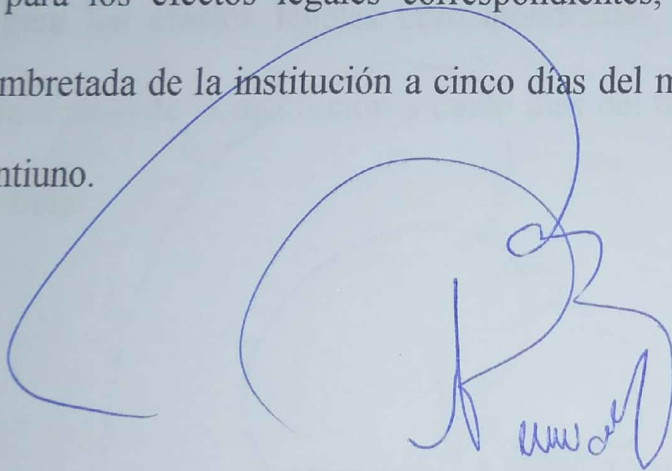 para los efectos legales correspondientes,
mbretada de la institución a cinco días del m
ntiuno.